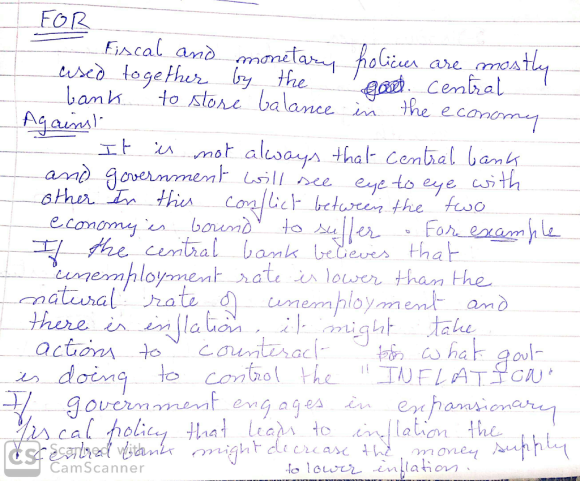 FOR
Fiscal and monetary policies are mostly
used together by the govt. central
bank to store balance in the economy
Against
It is not always that central bank
and government will see eye to eye with
other In this conflict between the two
economy is bound to suffer. For example
If the central bank believes that
unemployment rate is lower than the
natural rate of unemployment and
there is inflation. it might take
actions to counteract what govt
is doing to control the "INFLATION"
If government engages in expansionary
fiscal policy that leads to inflation the
central bank might decrease the money supply
to lower inflation.
CS Scanned with
CamScanner